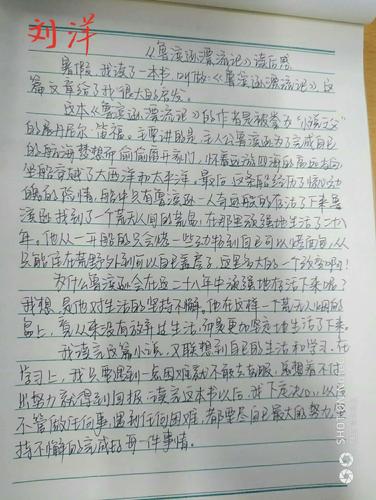 刘洋
《鲁滨逊漂流记》读后感
暑假,我读了一本书,叫做《鲁滨逊漂流记》这
篇文章给了我很大的启发。
这本《鲁滨逊漂流记》的作者是被誉为“小说之父”
的丹尼尔·笛福。主要讲的是,主人公鲁滨逊为了完成自己
的航海梦想而偷偷离开家门,怀着远游四海的高远志向
坐船穿越了大西洋和太平洋。最后,这条船经历了惊心动
魄的险情,船中只有鲁滨逊一人奇迹般的存活了下来鲁
滨逊找到了一个荒无人间的荒岛,在那里顽强地生活了二十八
年。他从一开始的只会
只能住在荒野外到可以自己盖房子,这是多大的一个改变啊!
为什么鲁滨逊会在这二十八年中顽强地存活下来呢?
我想,是他对生活的坚持不懈。他在这样一个荒无人烟的
岛上,看从来没有放弃过生活,而是更加坚定地生活了下来。
我读完这篇小说,又联想到自己的生活和学习,在
学习上,我只要遇到一点困难就不敢去克服,总想着不付
出努力就得到回报。读完这本书以后,我下定决心,以后
不管做任何事,遇到任何困难,都要尽自己最大的努力,坚
持不懈的完成好每一件事情。
SHOT ON